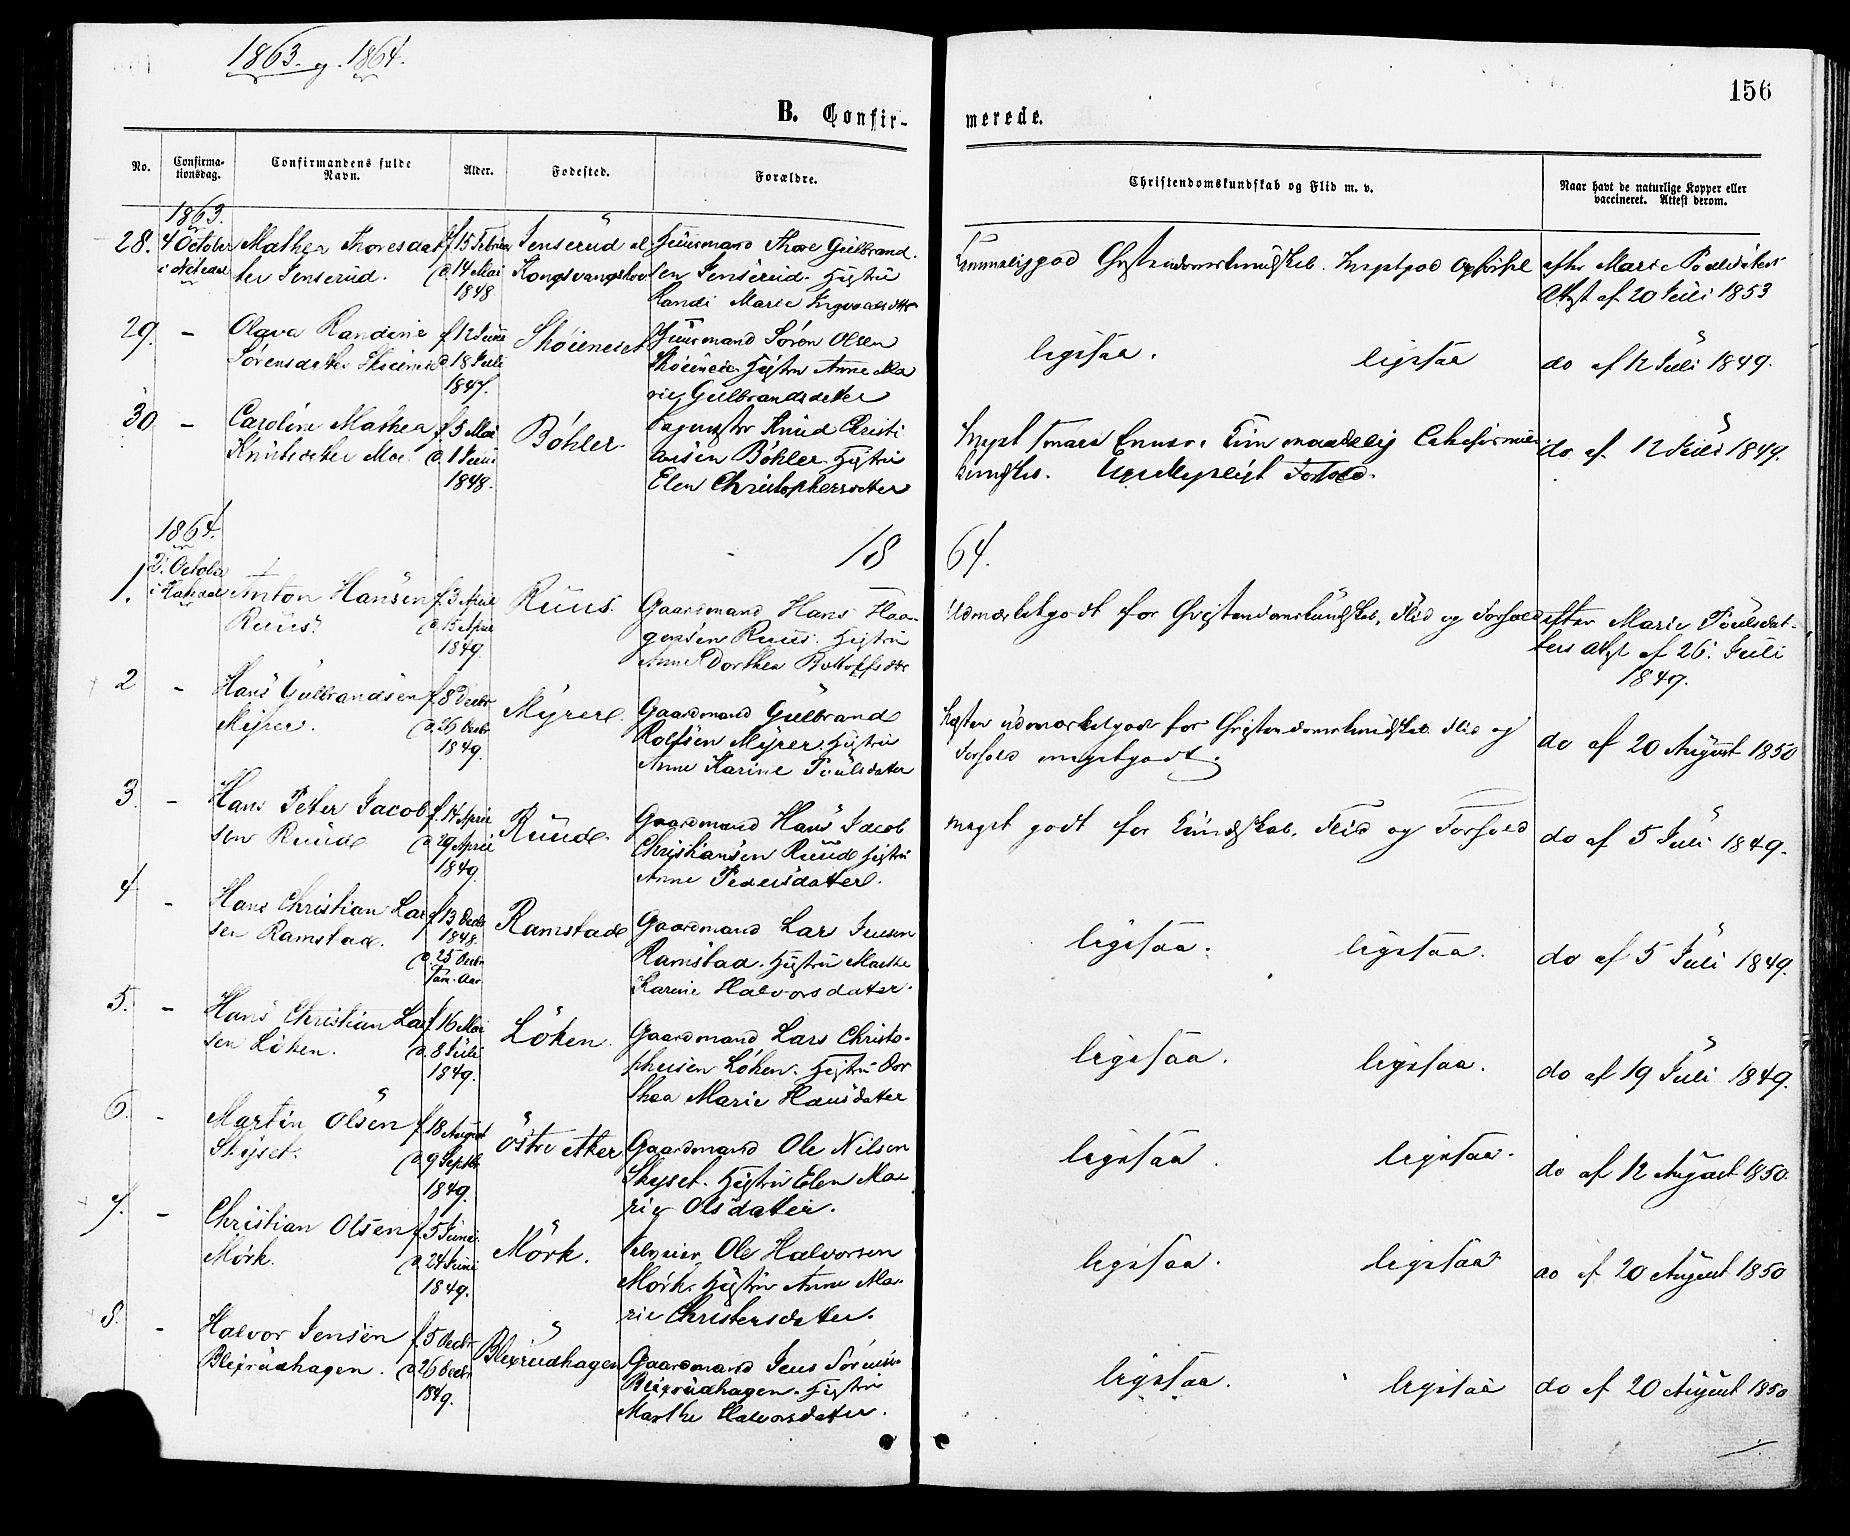 1863. og 1864.
156
B. Confir-
merede.
No.
Confirma-
tionsdag.
Confirmandens fulde
Navn.
Alder.
Fodested.
Forældre.
Christendomskundskab og Flid m. v.
Naar havt de naturlige Kopper eller
vaccineret. Attest derom.
1863.
28.
4 October
Mathea Thoresdat
ter Jenserud.
f 15 Februar
d 14 Mai
1848
Jenserud
Huusmand Thore Gulbrand-
sen Jenserud. Hustru
Randi Marie
Christendomskundskab. meget god
efter Marie Poulsdatters
Attest af 20 Juli 1853
29. -
Randine
Sørensdatter
f 12 Juni
d 18 Juli
1847.
Huusmand Søren Olsen
Hustru Anne Ma
rie Gulbrandsdatter
ligesaa.
ligesaa
do af 12 Juli 1849.
30 -
Caroline Mathea
Knudsdatter Moe.
f 5 Mai
d. 1 Juni
1848.
Bøhler.
Knud Christi
ansen Bøhler. Hustru
Elen Christophersdatter
Meget
do af 12 Juli 1849.
1864.
18
64.
1.
2 October
Anton Hansen
Ruus.
f. 3 April
d. 15 April
1849.
Ruus.
Gaardmand Hans Haa-
gensen Ruud. Hustru
Anne Dorthea
Udmærketgodt for Christendomskundskab, Flid og Forhold
efter Marie Poulsdat-
ters Attst af 26. Juli
1849.
2 -
Hans Gulbrandsen
Myrer.
f. 8 Decbr
d. 26 Decbr
1849.
Myrer.
Gaardmand Gulbrand
Rolfsen Myrer. Hustru
Anne Karine Poulsdatter
Næsten udmærketgodt for Christendomskundskab. Flid og
Forhold megetgodt.
do af 20 August 1850
3. -
Hans Peter Jacob
sen Ruud
f. 14 April
d 29 April
1849.
Ruud.
Gaardmand Hans Jacob
Christiansen Ruud Hustru
Anne Pedersdatter.
meget godt for Kundskab, Flid og Forhold
do af 5 Juli 1849.
4 -
Hans Christian Lar
sen Ramstad.
f. 13 Decbr
1848.
d. 25 Decbr
sam. Aar.
Ramstad
Gaardmand Lars Jensen
Ramstad. Hustru Marthe
Karine Halvorsdatter.
ligesaa.
ligesaa.
do af 5 Juli 1849.
5. -
Hans Christian Lar
sen Løken.
f. 16 Mai
d. 8 Juli
1849.
Løken.
Gaardmand Lars Christo-
phersen Løken. Hustru Dor
thea Marie Hansdatter
ligesaa.
ligesaa.
do af 19 Juli 1849.
6. -
Martin Olsen
Skyset.
f. 18 August
d 9 Septbr.
1849.
Østre Aker
Gaardmand Ole Nilsen
Skyset. Hustru Elen Ma
rie Olsdatter.
ligesaa.
ligesaa.
do af 12 August 1850.
7. -
Christian Olsen
Mørk.
f 5 Juni
d 24 Juni
1849.
Mørk.
Selveier Ole Halvorsen
Mørk. Hustru Anne Ma-
rie Christensdatter.
ligesaa.
ligesaa
do af 20 August 1850
8. -
Halvor Jensen
Blixrudhagen.
f. 5 Decbr
d 26 Decbr
1849.
Blixrudhagen
Gaardmand Jens Sørensen
Blixrudhagen. Hustru
Marthe Halvorsdatter.
ligesaa.
ligesaa
do af 20 August 1850